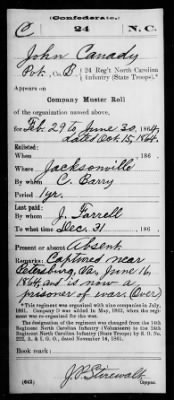 (Confederate.)
C 24 N.C.
John Canady
Pvt., Co. B, 24 Reg't North Carolina
Infantry (State Troops).*
Appears on
Company Muster Roll
of the organization named above,
for Feb. 29 to June 30, 1864,
dated Oct. 15, 1864.
Enlisted:
When 186 .
Where Jacksonville
By whom C. Barry
Period 1 yr.
Last paid:
By whom J. Farrell
To what time Dec. 31 186 .
Present or absent Absent
Remarks: Captured near
Petersburg, Va., June 16,
1864, and is now a
prisoner of war. (Over)
* This regiment was organized with nine companies in July,
1861. Company D was added in May, 1862, when the regiment
was re-organized.
The designation of the regiment was changed from the 14th
Regiment North Carolina Infantry (Volunteers) to the 24th
Regiment North Carolina Infantry (State Troops) by S. O. No.
222, A. & I. G. O., dated November 14, 1861.
Book mark:
(642) J. P. Stirewalt
Copyist.